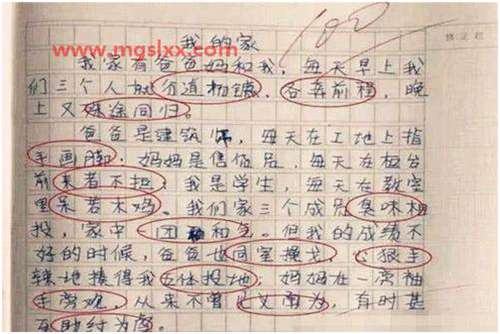 www.mgslxx.com
我的家
100
我家有爸爸妈和我，每天早上我
们三个人就分道扬镳，各奔前程，晚
上又殊途同归。
爸爸是建筑师，每天在工地上指
手画脚；妈妈是售货员，每天在柜台
前来者不拒；我是学生，每天在教室
里呆若木鸡。我们家三个成员臭味相
投，家中一团和气。但我的成绩不
好的时候，爸爸也同室操戈，心狠手
辣地揍得我五体投地，妈妈在一旁袖
手旁观，从来不曾见义勇为，有时甚
至助纣为虐。